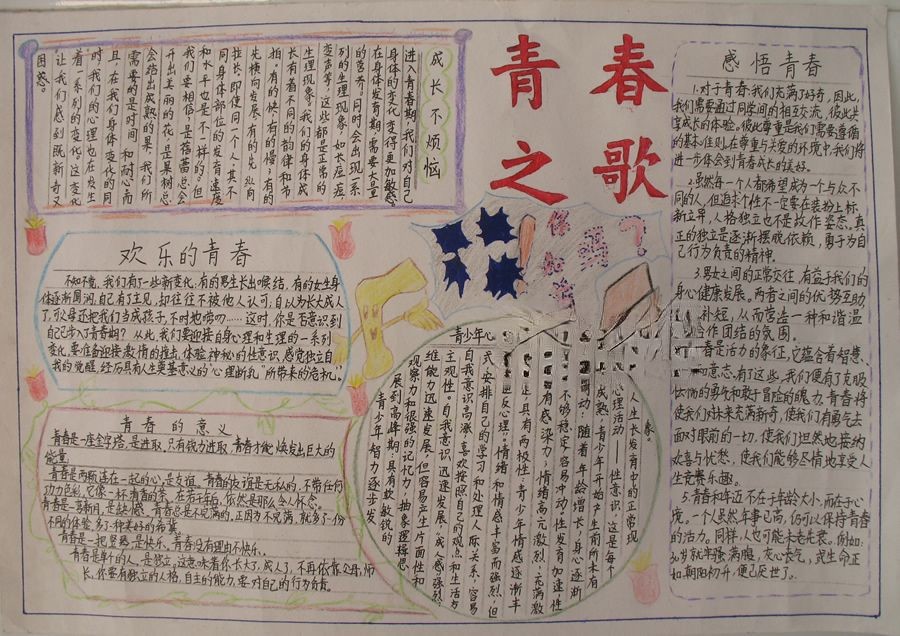 青春
之歌
成长不烦恼
进入青春期,我们对自己
身体的变化变得更加敏感。
在身体发育期,需要大量
的营养。同时会出现一系
列的生理现象,如长痘痘、
变声等,这些都是正常的
生理现象。我们的身体成
长有着不同的韵律和节
拍,有的快,有的慢;有的
先横向发展,有的先纵向
拉长;即使同一个人,其不
同身体部位的发育速度
和水平也是不一样的。但
我们要相信,是蓓蕾总会
开出美丽的花,是果树总
会结出成熟的果,我们所
需要的是时间和耐心,而
且,在我们身体变化的同
时,我们的心理也在发生
着一系列的变化。这变化
让我们感到既新奇又
困惑。
欢乐的青春
不知不觉,我们有一些新变化,有的男生长出喉结,有的女生身
体逐渐圆润,自己有了主见,却往往不被他人认可,自以为长大成人
了,父母还把我们当成孩子,不时地唠叨……这时,你是否意识到
自己步入了青春期?从此,我们要迎接自身心理和生理的一系列
变化,要准备迎接激情的撞击,体验神秘的性意识,感觉独立自
我的觉醒,经历具有人生奠基意义的“心理断乳”所带来的危机。
青春的意义
青春是一座金字塔,是进取,只有锐力进取,青春才能焕发出巨大的
能量。
青春是两颗连在一起的心,是友谊,青春的友谊是无私的,不带任何
功力色彩,它像一杯清香的茶,在若干年后,依然是那么令人怀念。
青春是一弯新月,是缺憾,青春总是不完满的,正因为不完满,就多了一份
不同的体验,多了一种美好的希冀。
青春是一把竖琴,是快乐,青春没有理由不快乐。
青春是单个的人,是独立。这意味着你长大了,成人了,不再依靠父母,师
长,你要有独立的人格,自主的能力,要对自己的行为负责。
你
知
吗?
青少年心
人生长发育中的正常现
象。
心理活动——性意识,这是每个
成熟,随着年龄增长,身心逐渐
不够稳定,容易冲动,性发育加速,性
有感染力;情绪高亢激烈;充满激
定,具有两极性,青少年情感逐渐丰
逆反心理。情绪和情感丰富而强烈,但
式安排自己的学习和处理人际关系,容易
自我意识高涨,喜欢按照自己的观点和生活方
主观性。自我意识迅速发展,成人感强烈;
维能力迅速发展,但容易产生片面性和
观察力和很强的记忆力,抽象逻辑思
展到高峰期,具有较敏锐的
青少年智力逐步发
感悟青春
1.对于青春,我们充满了好奇,因此,
我们需要通过同学间的相互交流,彼此共
享成长的体验。彼此尊重是我们需要遵循
的基本准则,在尊重与关爱的环境中,我们将
进一步体会到青春成长的美好。
2.虽然每一个人都希望成为一个与众不
同的人,但追求个性不一定要在装扮上标
新立异,人格独立也不是故作姿态。真
正的独立是逐渐摆脱依赖,勇于为自
己行为负责的精神。
3.男女之间的正常交往,有益于我们的
身心健康发展。两者之间的优势互助
补短,从而营造一种和谐温
合作团结的氛围。
青春是活力的象征,它蕴含着智慧、
和意志。有了这些,我们便有了克服
怯懦的勇气和敢于冒险的魄力。青春将
使我们对未来充满新奇,使我们有勇气去
面对眼前的一切,使我们坦然地接纳
欢喜与忧愁,使我们能够尽情地享受人
生竞赛乐趣。
5.青春和年迈不在于年龄大小,而在于心
境。一个人虽然年事已高,仍可以保持青春
的活力。同样,人也可能未老先衰。例如:
30岁就牢骚满腹,灰心丧气,或生命正
如朝阳初升,便已厌世了。